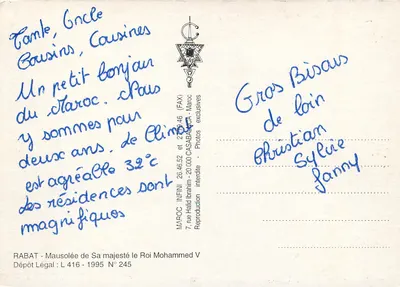 Tante, Oncle
Cousins, Cousines
Un petit bonjour
du Maroc. Nous
y sommes pour
deux ans. Le Climat
est agréable 32°C
des résidences sont
magnifiques
Gros Bisous
de loin
Christian
Sylvie
fanny
MAROC INFINI 26.46.52 et 27.46 (FAX)
7, rue Hafid Ibrahim - 20 000 CASABLANCA - Maroc
Reproduction interdite - Photos exclusives
RABAT - Mausolée de Sa majesté le Roi Mohammed V
Dépôt Légal : L 416 - 1995 N° 245